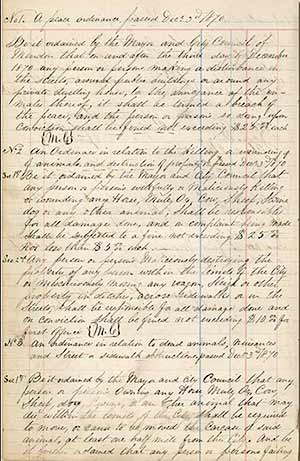 No 1. A peace ordinance, passed Dec 3d 1870.
Be it ordained by the Mayor and City Council of
Mendon that on and after the third day of December
1870 any person or persons making a disturbance in
the streets, around public buildings or around any
private dwelling house, to the annoyance of the in-
mates thereof, it shall be termed a breach of
the peace, and the person or persons so doing upon
conviction shall be fined not exceeding $25 each
No 2 An Ordinance in relation to the killing or wounding
of animals, and destruction of property, passed Dec 3d 1870
Sec 1st Be it ordained by the Mayor and City Council that
any person or persons wilfully or Maliciously killing
or wounding any Horse, Mule, Ox, Cow, Sheep, Swine
dog or any other animal, shall be responsible
for all damage done, and on complaint being made
shall be subjected to a fine not exceeding $25
nor less than $5 each.
Sec 2d Any person or persons Maliciously destroying the
property of any person within the limits of the City
or Mischievously Moving any wagon, Sleigh or other
property in ditches, across sidewalks or in the
streets, shall be responsible for all damage done and
on conviction shall be fined not exceeding $10 for
first offence
No 3. An ordinance in relation to dead animals, nuisances
and Street or sidewalk obstructions, passed Dec 3d 1870.
Sec 1st Be it ordained by the Mayor and city Council that any
person or persons owning any Horse Mule Ox Cow
Sheep dog or any other animal that may
die within the limits of the City, shall be required
to move, or cause to be moved the carcase of said
animal, at least one half mile from the City. And be
it further ordained that any person or persons failing